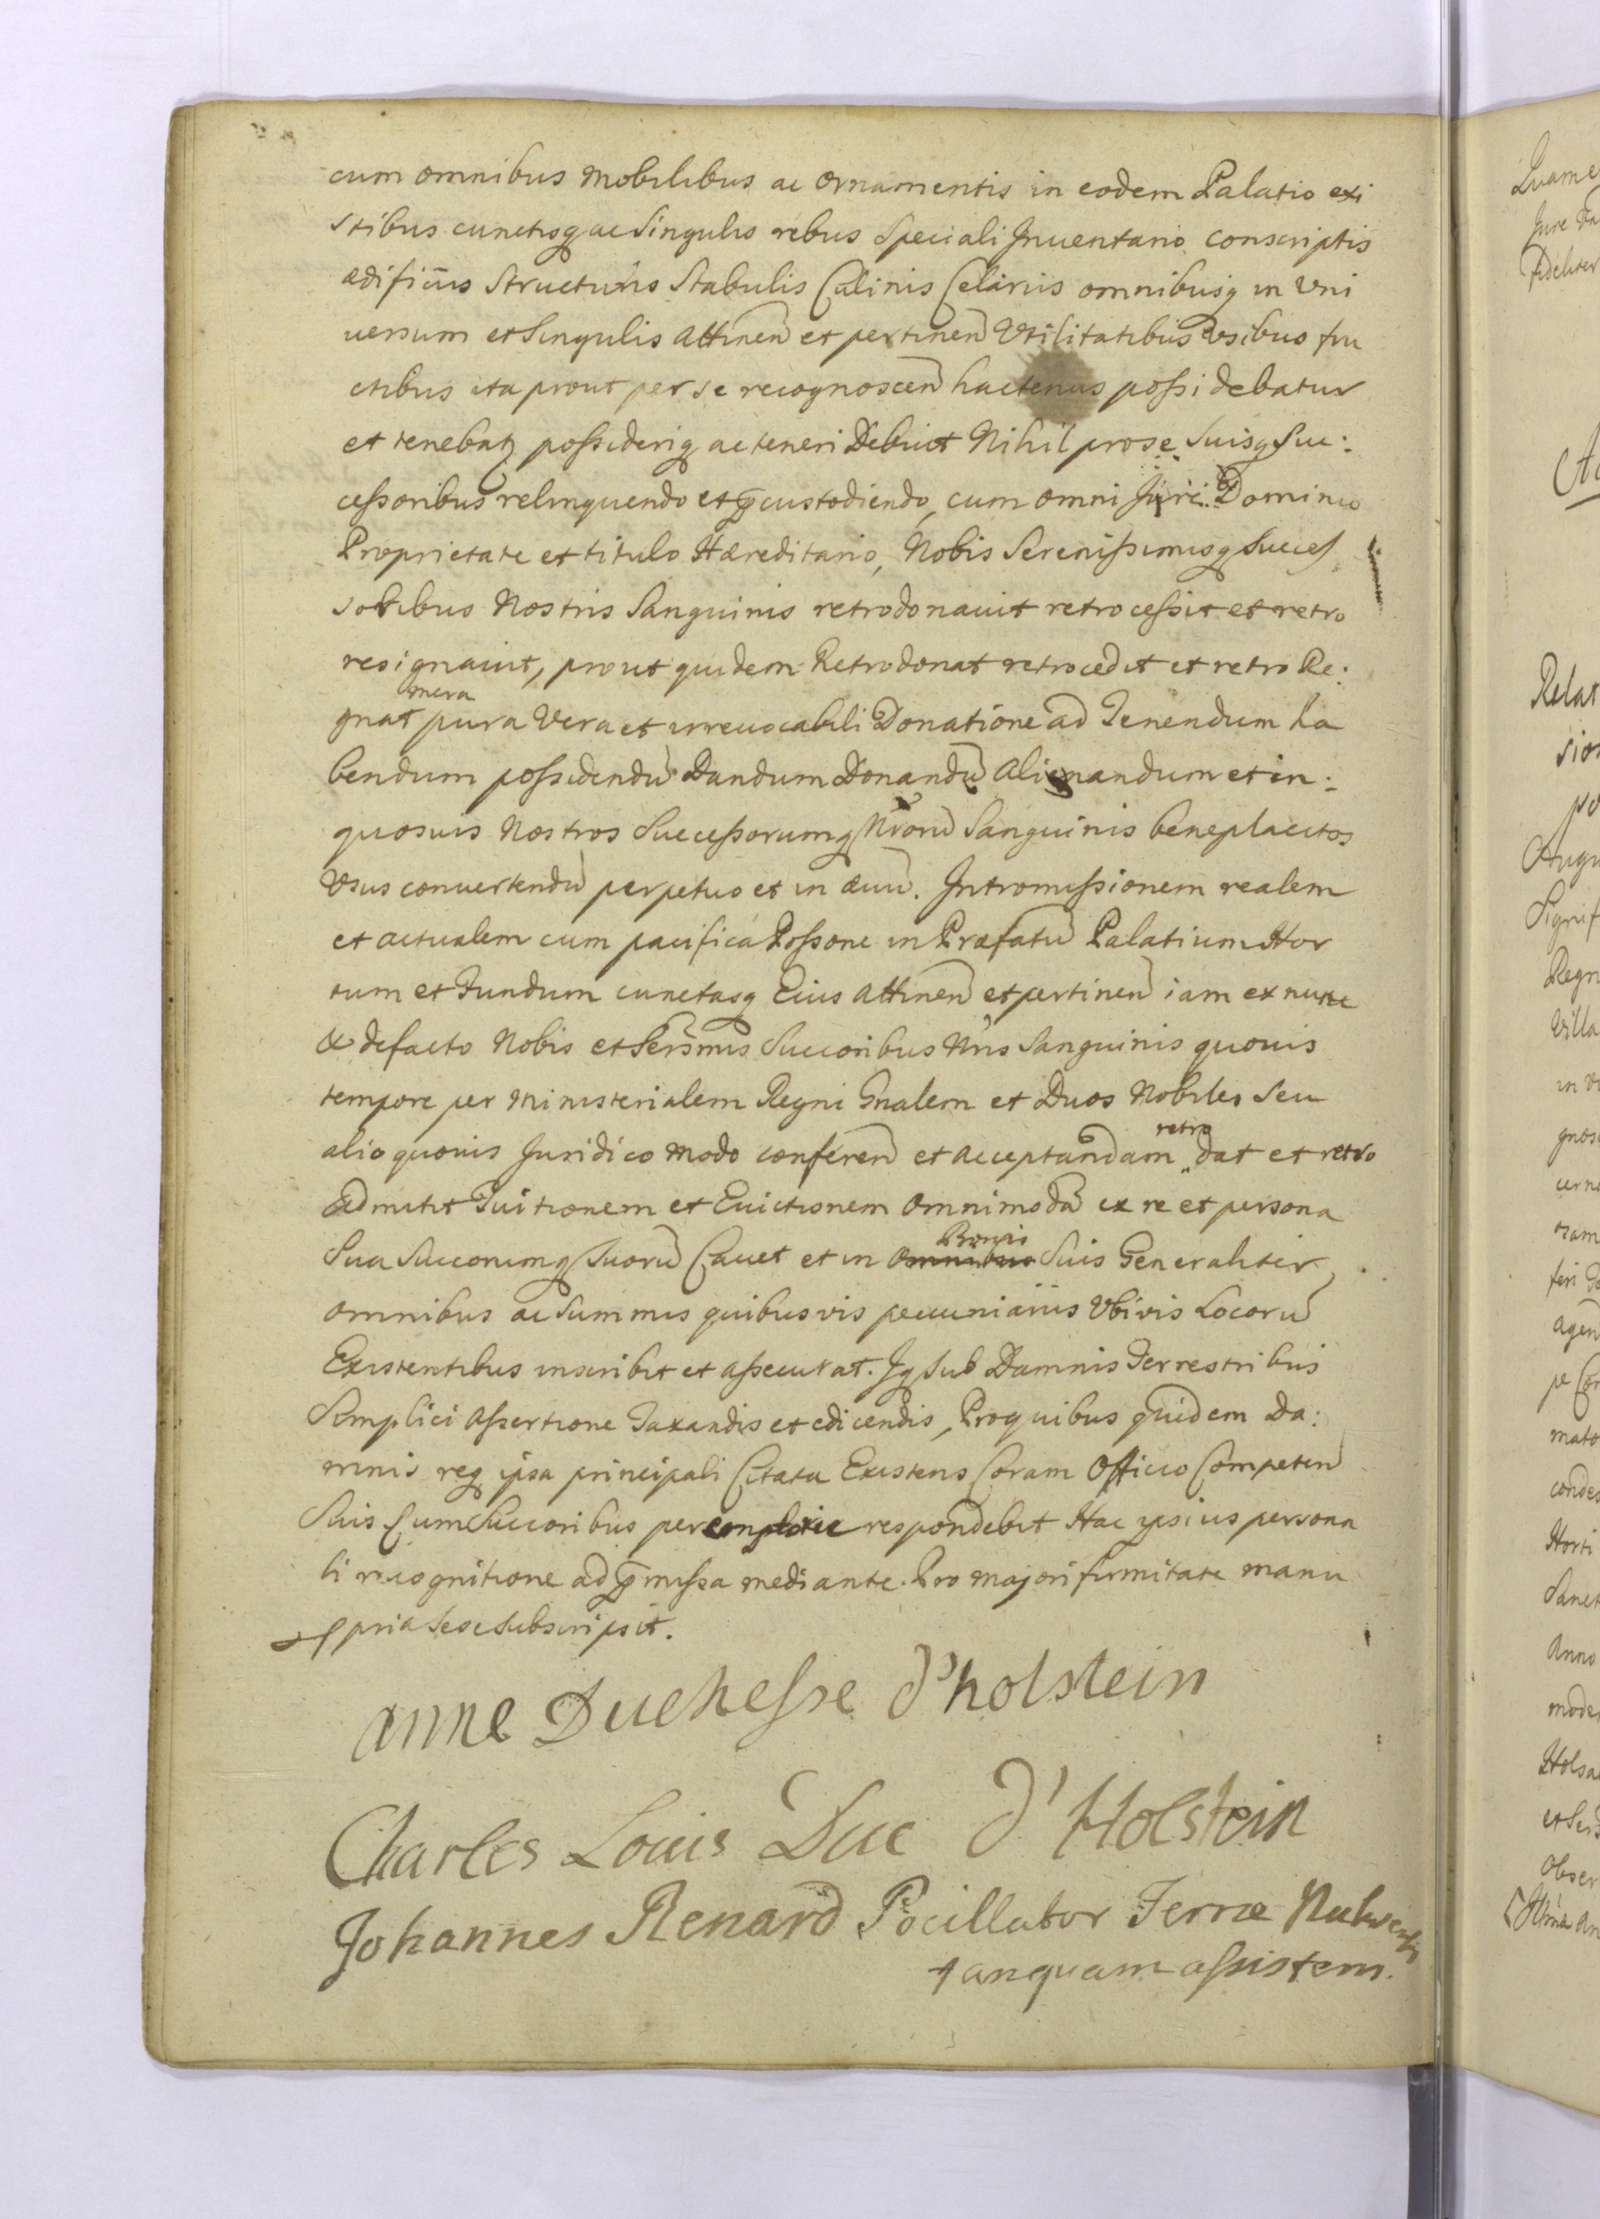 cum omnibus Mobilibus ac ornamentis in eodem Palatio exi
stibus cunctisq ac Singulis rebus Speciali Inventario conscriptis
ædificiis Structuris Stabulis Culinis Celariis omnibusq in Uni
uersum et Singulis attinen et pertinen Utilitatibus Usibus fru
ctibus ita prout per se recognoscen hactenus possidebatur
et tenebatq possiderig ac teneri Debuit Nihil pro se Suisq Suc:
cessoribus relinquendo et custodiendo, cum omni Jure et Dominio
Proprietate et titulo Hæreditario, Nobis Serenissimisq Succes
soribus Nostris Sanguinis retrodonauit retrocessit et retro
resignauit, prout quidem Retrodonat retrocedit et retro Re:
gnat mera pura Vera et irreuocabili Donatione ad Tenendum ha
bendum possidendu Dandum Donandu Alienandum et in:
quosuis Nostros Successorumq Nroru Sanguinis beneplacitos
Usus conuertendu perpetuo et in æuu. Intromissionem realem
et actualem cum pacifica Possone in Præfatu Palatium Hor
tum et Fundum cunctasq Eius attinen et pertinen iam ex nunc
& defacto Nobis et Sermis Succoribus Nris Sanguinis quouis
tempore per Ministerialem Regni Gnalem et Duos Nobiles Seu
alio quouis Juridico Modo conferen et acceptandam retro dat et retro
admitit Tuitionem et Euictionem omnimoda ex re et persona
Sua Succorumq Suoru Cauet et in Bonis Suis Generaliter
omnibus ac Summis quibusvis pecuniariis Ubivis Locoru
Existentibus inscribit et assecurat. Jq Sub Damnis Terrestribus
Simplici Assertione Taxandis et edicendis, Pro quibus quidem Da:
mnis req ipsa principali Citata Existens Coram Officio Competen
Suis Cum Succoribus peremptorie respondebit Hac ipsius persona
li recognitione ad præmissa mediante. Pro majori firmitate manu
pria Sese Subscripsit.
anne Duchesse d'holstein
Charles Louis Duc d'Holstein
Johannes Renard Pocillator Terræ
tanquam assistens.